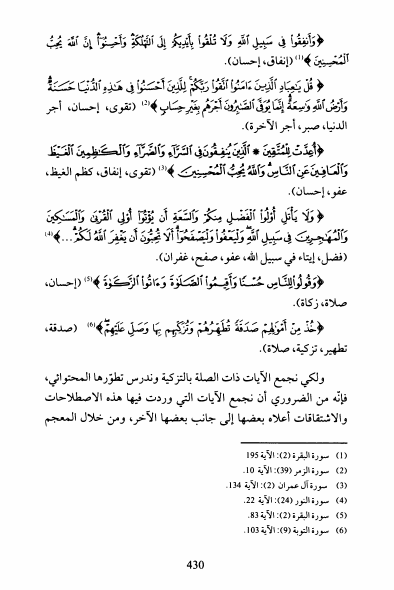 ﴿وَأَنفِقُوا۟ فِى سَبِيلِ ٱللَّهِ وَلَا تُلْقُوا۟ بِأَيْدِيكُمْ إِلَى ٱلتَّهْلُكَةِ وَأَحْسِنُوٓا۟ إِنَّ ٱللَّهَ يُحِبُّ
ٱلْمُحْسِنِينَ﴾(1) (إنفاق، إحسان).
﴿قُلْ يَٰعِبَادِ ٱلَّذِينَ ءَامَنُوا۟ ٱتَّقُوا۟ رَبَّكُمْ لِلَّذِينَ أَحْسَنُوا۟ فِى هَٰذِهِ ٱلدُّنْيَا حَسَنَةٌ
وَأَرْضُ ٱللَّهِ وَٰسِعَةٌ إِنَّمَا يُوَفَّى ٱلصَّٰبِرُونَ أَجْرَهُم بِغَيْرِ حِسَابٍ﴾(2) (تقوى، إحسان، أجر
الدنيا، صبر، أجر الآخرة).
﴿أُعِدَّتْ لِلْمُتَّقِينَ * ٱلَّذِينَ يُنفِقُونَ فِى ٱلسَّرَّآءِ وَٱلضَّرَّآءِ وَٱلْكَٰظِمِينَ ٱلْغَيْظَ
وَٱلْعَافِينَ عَنِ ٱلنَّاسِ وَٱللَّهُ يُحِبُّ ٱلْمُحْسِنِينَ﴾(3) (تقوى، إنفاق، كظم الغيظ،
عفو، إحسان).
﴿وَلَا يَأْتَلِ أُو۟لُوا۟ ٱلْفَضْلِ مِنكُمْ وَٱلسَّعَةِ أَن يُؤْتُوٓا۟ أُو۟لِى ٱلْقُرْبَىٰ وَٱلْمَسَٰكِينَ
وَٱلْمُهَٰجِرِينَ فِى سَبِيلِ ٱللَّهِ وَلْيَعْفُوا۟ وَلْيَصْفَحُوٓا۟ أَلَا تُحِبُّونَ أَن يَغْفِرَ ٱللَّهُ لَكُمْ...﴾(4)
(فضل، إيتاء في سبيل الله، عفو، صفح، غفران).
﴿وَقُولُوا۟ لِلنَّاسِ حُسْنًا وَأَقِيمُوا۟ ٱلصَّلَوٰةَ وَءَاتُوا۟ ٱلزَّكَوٰةَ﴾(5) (إحسان،
صلاة، زكاة).
﴿خُذْ مِنْ أَمْوَٰلِهِمْ صَدَقَةً تُطَهِّرُهُمْ وَتُزَكِّيهِم بِهَا وَصَلِّ عَلَيْهِمْ﴾(6) (صدقة،
تطهير، تزكية، صلاة).
ولكي نجمع الآيات ذات الصلة بالتزكية وندرس تطوّرها المحتوائي،
فإنّه من الضروري أن نجمع الآيات التي وردت فيها هذه الاصطلاحات
والاشتقاقات أعلاه بعضها إلى جانب بعضها الآخر، ومن خلال المعجم
(1) سورة البقرة (2): الآية 195
(2) سورة الزمر (39): الآية 10.
(3) سورة آل عمران (2): الآية 134.
(4) سورة النور (24): الآية 22.
(5) سورة البقرة (2): الآية 83.
(6) سورة التوبة (9): الآية 103.
430